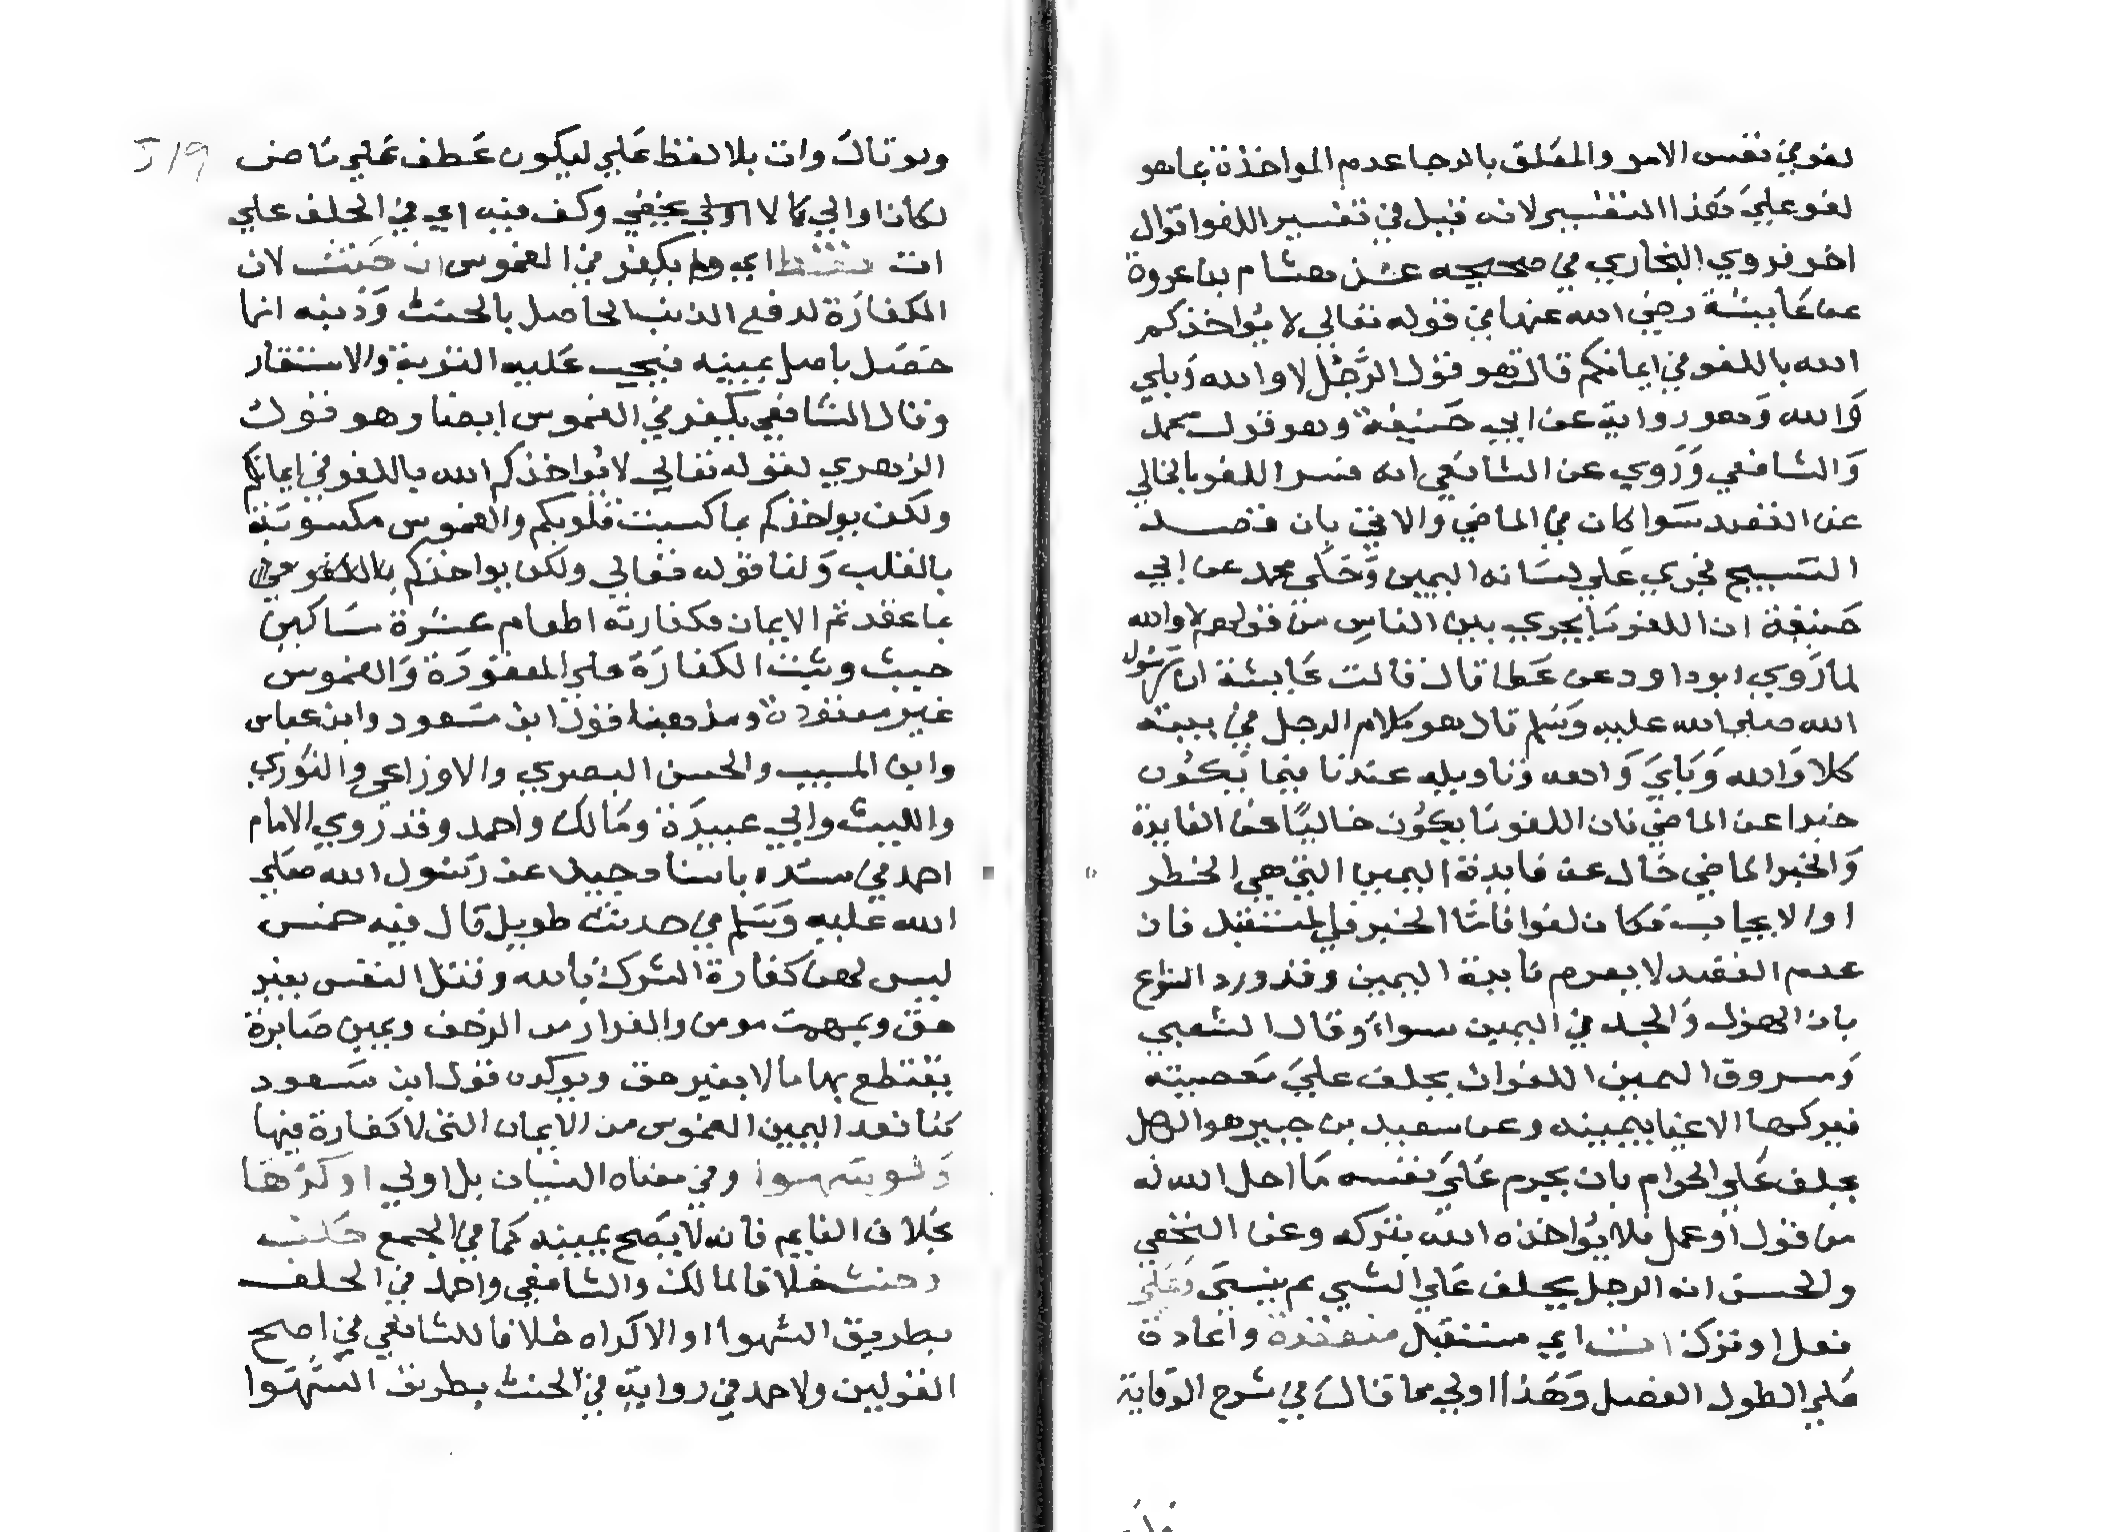 لغو في نفس الامر والمعلق بالرجا عدم المواخذة بما هو
لغو علي هذا التفسير لانه قيل في تفسير اللغو اقوال
اخر فروي البخاري في صحيحه عن هشام بن عروة
عن عايشة رضي الله عنها في قوله تعالي لا يؤاخذكم
الله باللغو في ايمانكم قالت هو قول الرجل لا والله وبلي
والله وهو رواية عن ابي حنيفة وهو قول محمد
والشافعي وروي عن الشافعي انه فسر اللغو بالخالي
عن القصد سوا كان في الماضي والاتي بان قصد
التسبيح فجري علي لسانه اليمين وحكي محمد عن ابي
حنيفة ان اللغو ما يجري بين الناس من قولهم لا والله
لما روي ابو داود عن عطا قال قالت عايشة ان رسول
الله صلي الله عليه وسلم قال هو كلام الرجل في بيته
كلا والله وبلي والله وتاويله عندنا فيما يكون
خبرا عن الماضي فان اللغو ما يكون خاليا عن الفايدة
والخبر الماضي خال عن فايدة اليمين التي هي الخطر
او الايجاب فكان لغوا فاما الخبر في المستقبل فان
عدم القصد لا يعدم فايدة اليمين وقد ورد الشرع
بان الهزل والجد في اليمين سواء وقال الشعبي
ومسروق اليمين اللغو ان يحلف علي معصيته
فيتركها لاغيا بيمينه وعن سعيد بن جبير هو الرجل
يحلف علي الحرام بان يحرم علي نفسه ما احل الله له
من قول او عمل فلا يؤاخذه الله بتركه وعن النخعي
والحسن انه الرجل يحلف علي الشي ثم ينسي وعلي
فعل او ترك ات اي مستقبل منعقدة واعادة
علي لطول الفصل وهذا اولي مما قال في شرح الوقاية
وترك وات بلا لفظ علي ليكون عطف علي ماض
لكان اولي كما لا يخفي وكفر فيه اي في الحلف علي
ات فقط اي ولم يكفر في الغموس ان حنث لان
الكفارة لدفع الذنب الحاصل بالحنث وذنبه انما
حصل باصل يمينه فيجب عليه التوبة والاستغفار
وقال الشافعي يكفر في الغموس ايضا وهو قول
الزهري لقوله تعالي لا يؤاخذكم الله باللغو في ايمانكم
ولكن يواخذكم بما كسبت قلوبكم والغموس مكسوبة
بالقلب ولنا قوله تعالي ولكن يواخذكم
بما عقدتم الايمان فكفارته اطعام عشرة مساكين
حيث رتبت الكفارة علي المعقودة والغموس
غير معقودة ومذهبنا قول ابن مسعود وابن عباس
وابن المسيب والحسن البصري والاوزاعي والثوري
والليث وابي عبيدة ومالك واحمد وقد روي الامام
احمد في مسنده باسناد جيد عن رسول الله صلي
الله عليه وسلم في حديث طويل قال فيه خمس
ليس لهن كفارة الشرك بالله وقتل النفس بغير
حق وبهت مومن والفرار من الزحف ويمين صابرة
يقتطع بها مالا بغير حق ويوكده قول ابن مسعود
كنا نعد اليمين الغموس من الايمان التي لا كفارة فيها
ولو سهوا وفي معناه النسيان بل اولي او كرها
بخلاف النايم فانه لا يصح يمينه كما في المجمع حلف
او حنث خلافا لمالك والشافعي واحمد في الحلف
بطريق السهو او الاكراه خلافا للشافعي في اصح
القولين ولاحمد في رواية في الحنث بطريق السهو ا